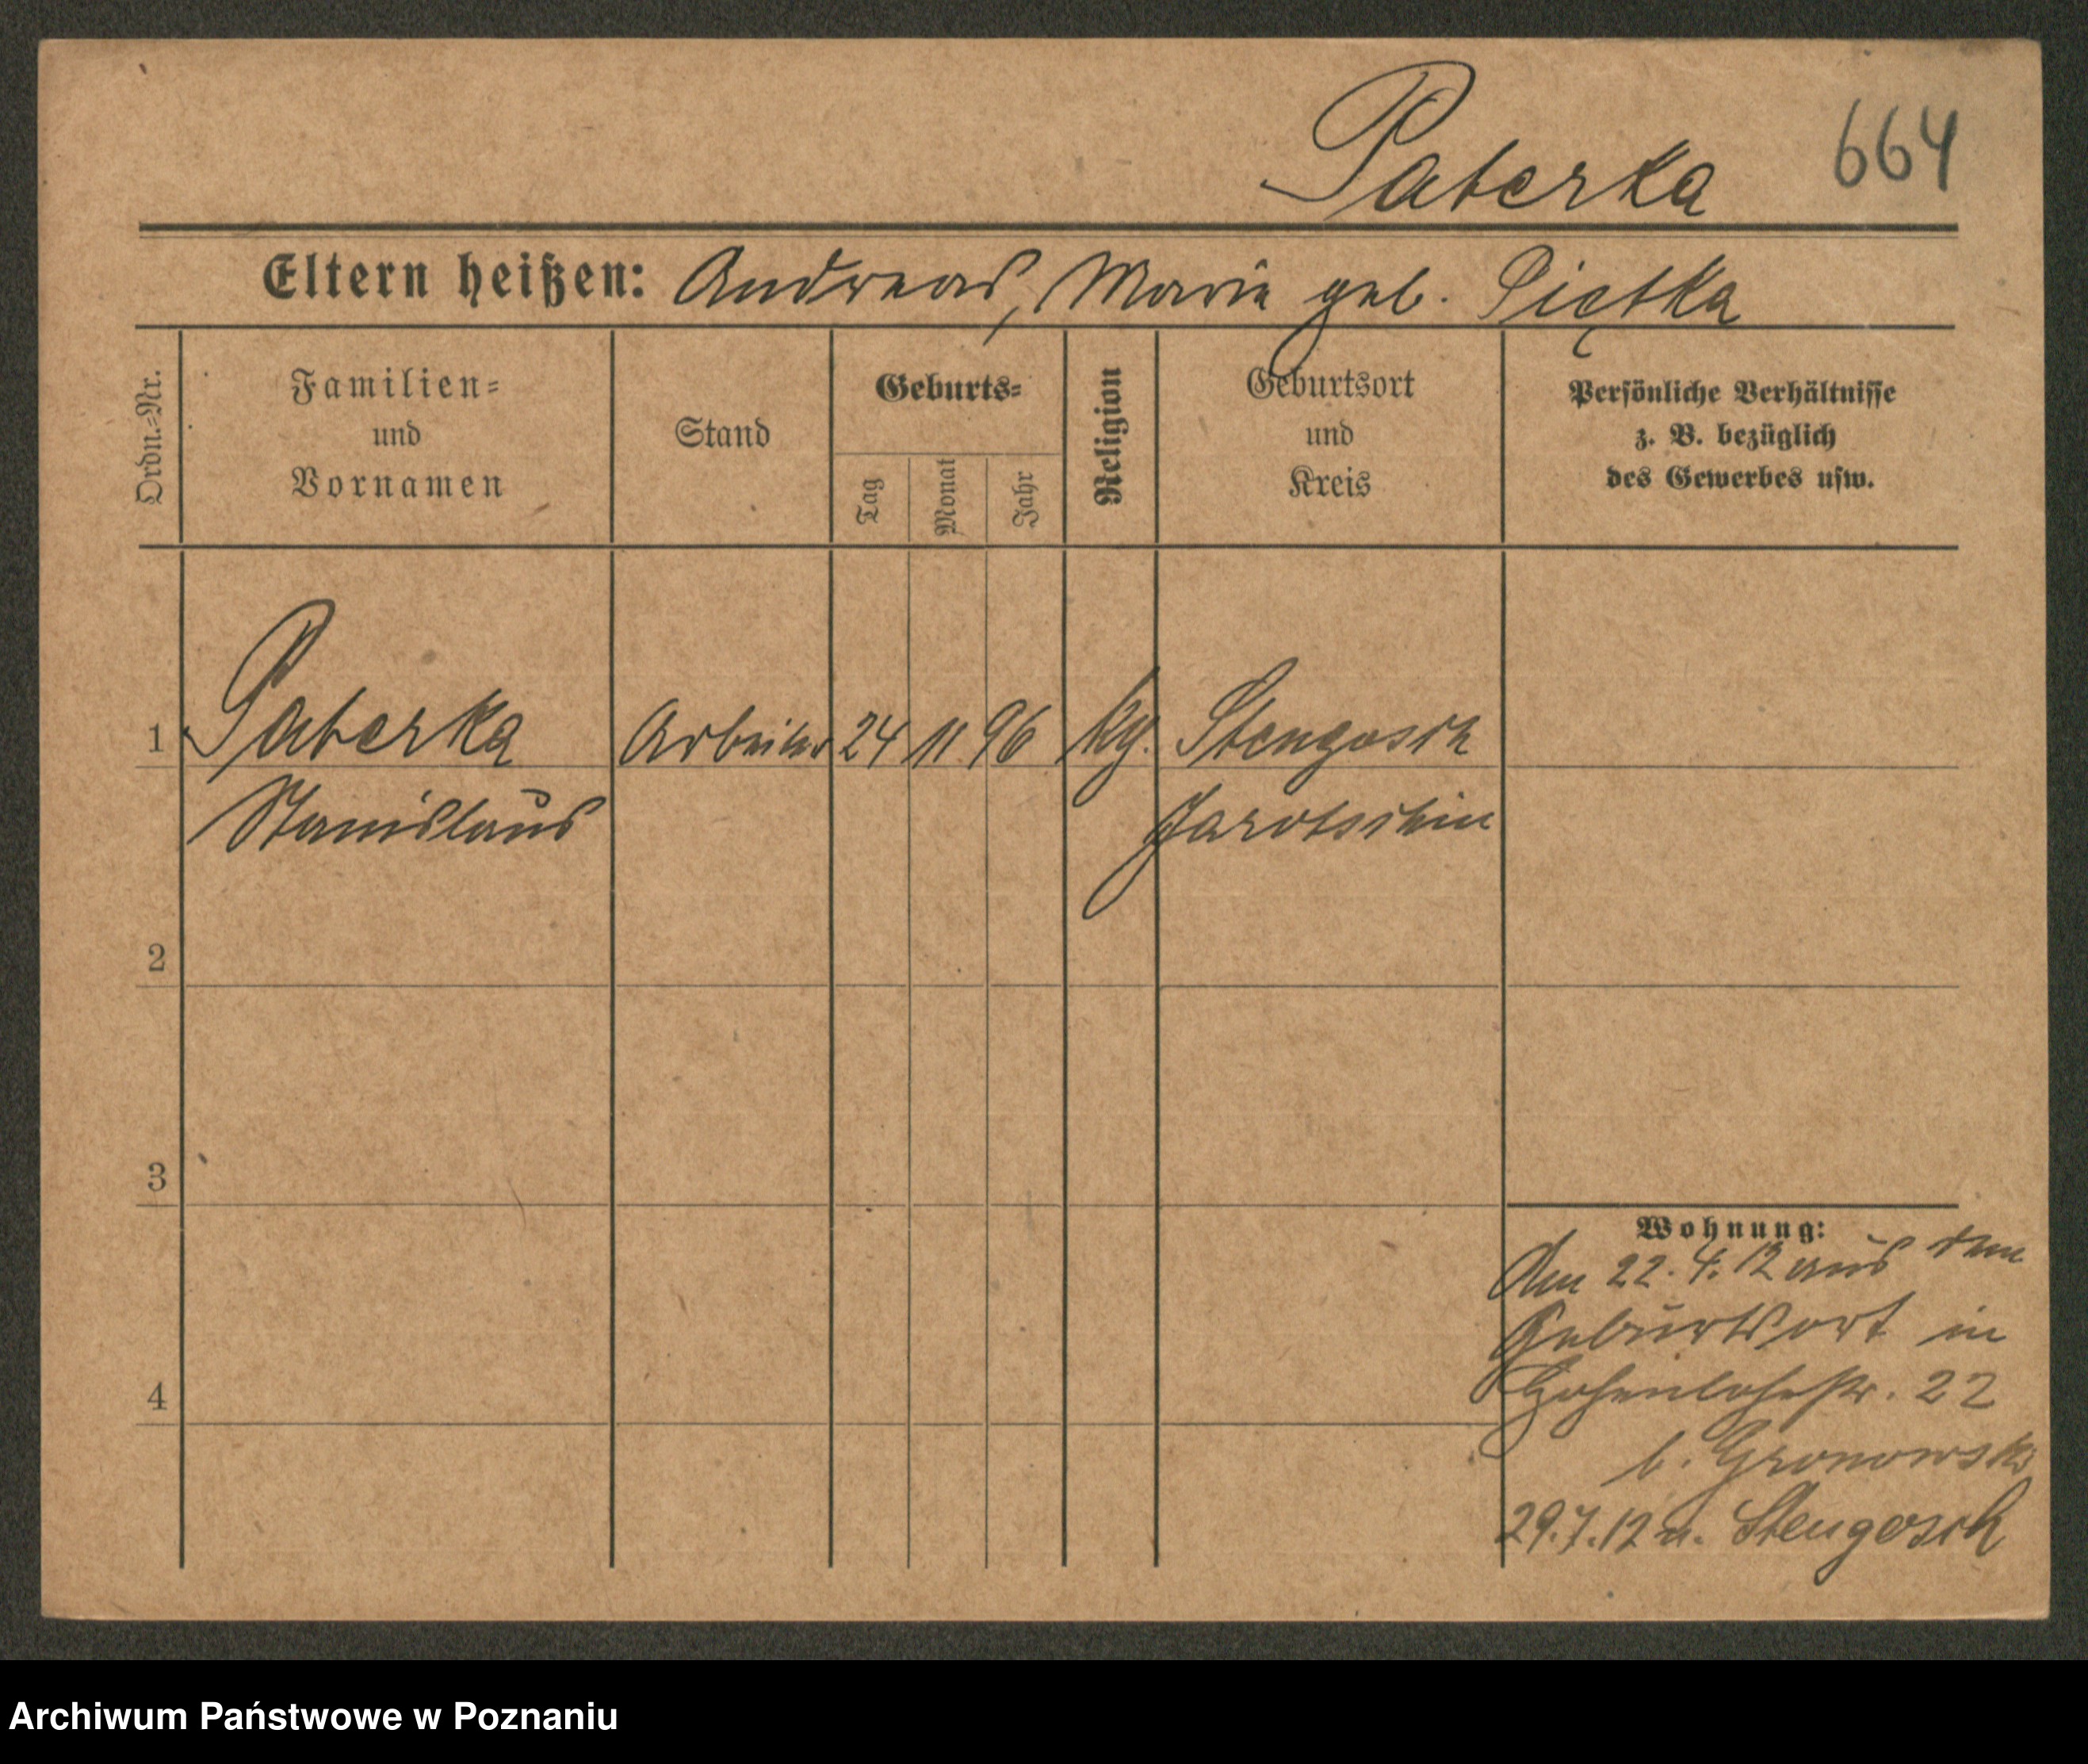 Paterka 664
Eltern heißen: Andreas, Marie geb. Piętka
Ordn.=Nr.
Familien=
und
Vornamen
Stand
Geburts=
Tag
Monat
Jahr
Religion
Geburtsort
und
Kreis
Persönliche Verhältnisse
z. B. bezüglich
des Gewerbes usw.
1 Paterka Arbeiter 24 11 96 Stengosch
Stanislaus Jarotschin
2
3
4
Wohnung:
Am 22.4.12 aus dem
Geburtsort in
Hohenlohestr. 22
b. Gronowski
29.7.12 n. Stengosch
Archiwum Państwowe w Poznaniu